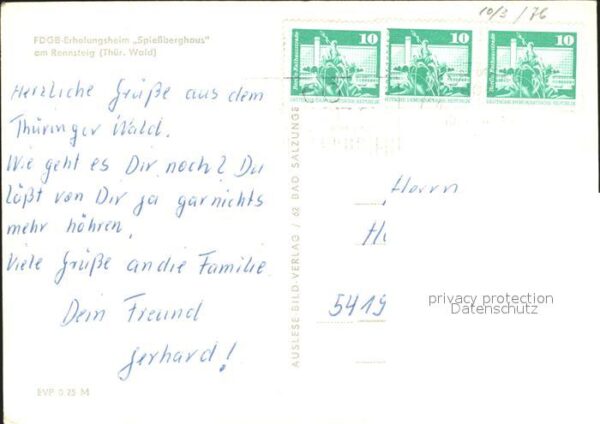 10/3/76
FDGB-Erholungsheim „Spießberghaus"
am Rennsteig (Thür. Wald)
10 10 10
Herzliche Grüße aus dem
Thüringer Wald.
Wie geht es Dir noch? Du
läßt von Dir ja garnichts
mehr höhren.
Viele Grüße an die Familie
Dein Freund
Gerhard!
EVP 0.25 M
AUSLESE BILD-VERLAG / 62 BAD SALZUNGE
Herrn
5419
privacy protection
Datenschutz